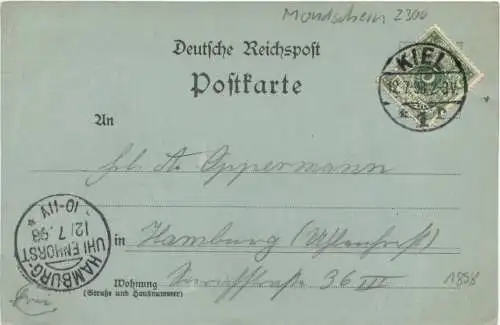 Mondschein 2300
Deutsche Reichspost
Postkarte
KIEL
12.7.98. 2-3N.
1 c
An
A. Oppermann
in Hamburg (Uhlenhorst)
Wohnung
(Straße und Hausnummer)
36 III
HAMBURG-UHLENHORST
12/7.98
10-11V
1898